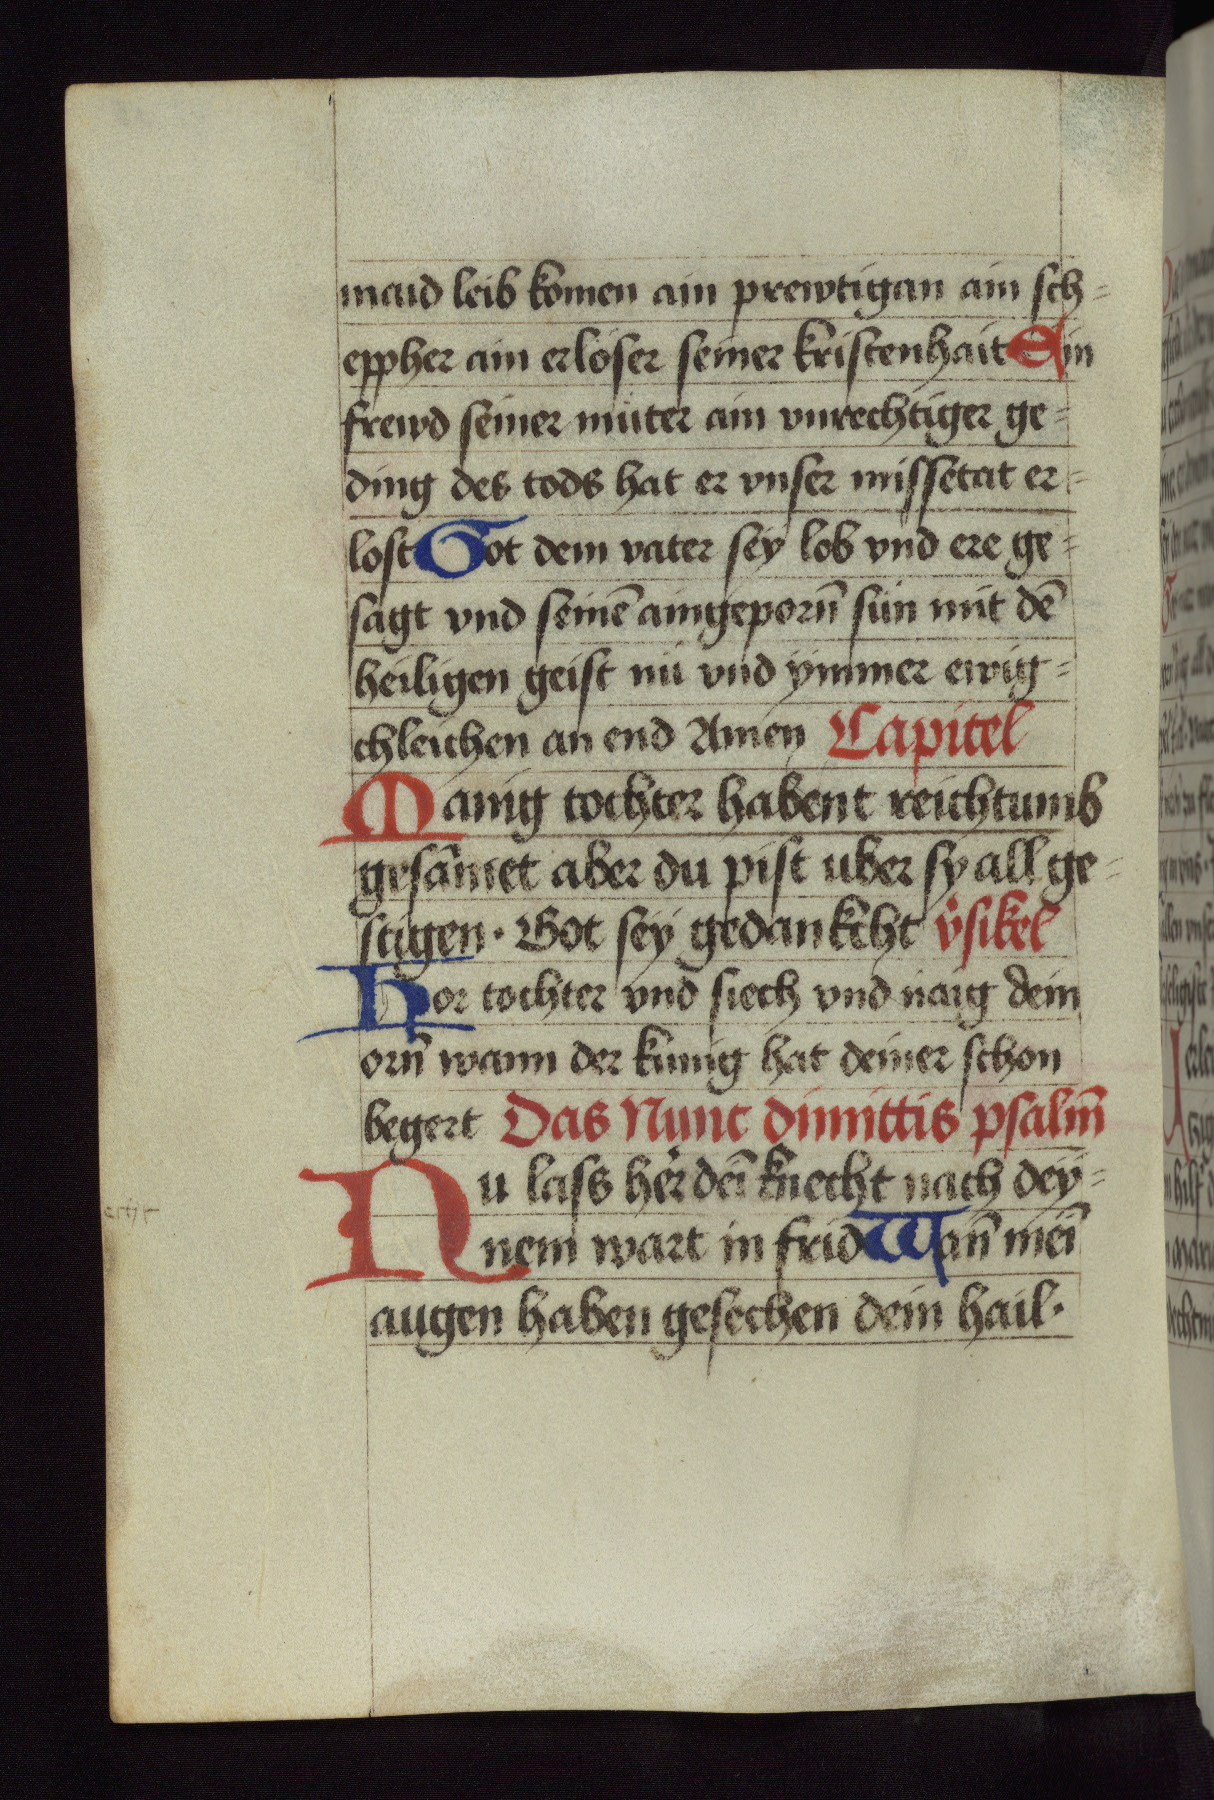 maid leib komen ain prewtigan ain sch=
eppher ain erloser seiner kristenhait Ain
frewd seiner muter ain vnrechtiger ge=
ding des tods hat er vnser missetat er=
lost Got dem vater sey lob vnd ere ge=
sagt vnd seinē aingeporn̄ sun mit dē
heiligen geist nü vnd ymmer ewig=
chleichen an end Amen Capitel
Manig tochter habent reichtumb
gesāmet aber du pist uber sy all ge=
stigen · Got sey gedankcht v̓sikel
Hor tochter vnd siech vnd naig dein
orn̄ wann der kunig hat deiner schon
begert Das Nunc dimittis psalm̄
Nu lass her̓ dei̅ knecht nach dey=
nem wart in frid Wan̄ mei̅
augen haben gesechen dein hail ·